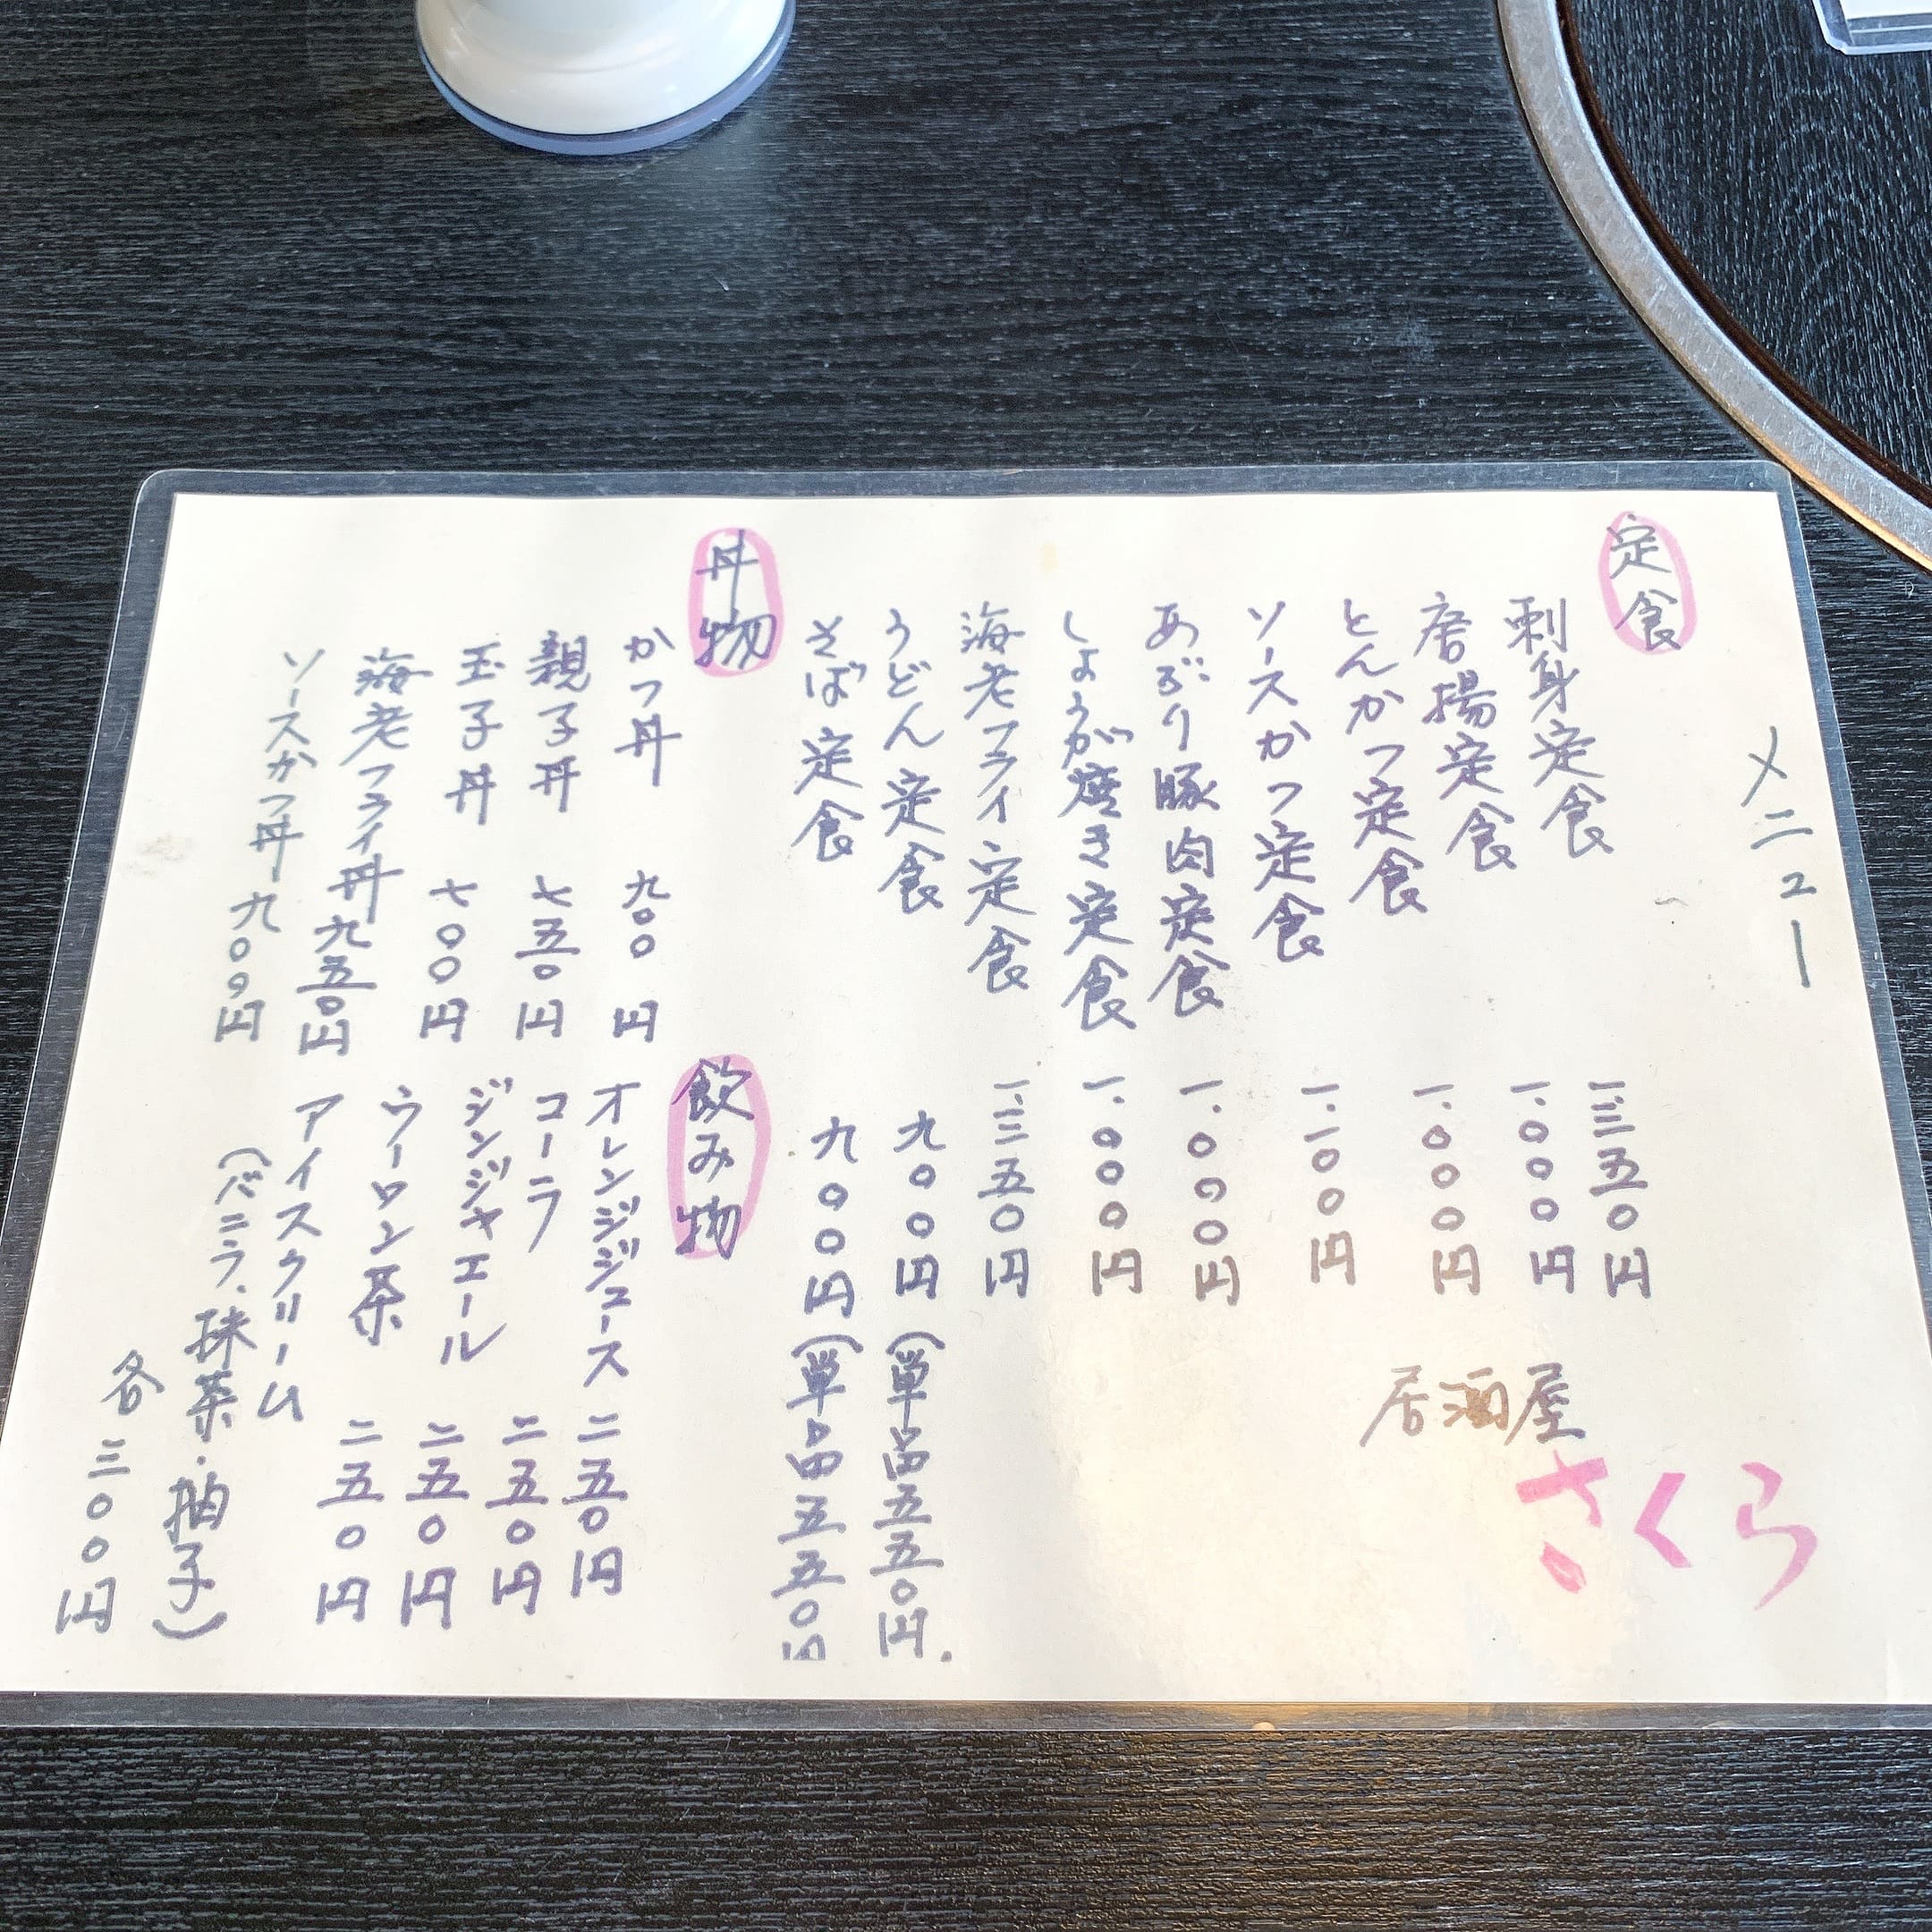 メニュー
定食
刺身定食 一.三五〇円
唐揚定食 一.〇〇〇円
とんかつ定食 一.〇〇〇円
ソースかつ定食 一.一〇〇円
あぶり豚肉定食 一.〇〇〇円
しょうが焼き定食 一.〇〇〇円
海老フライ定食 一.二五〇円
うどん定食 九〇〇円(単品五五〇円.
さば定食 九〇〇円(単品五五〇円
居酒屋
さくら
丼物
かつ丼 九〇〇円
親子丼 七五〇円
玉子丼 七〇〇円
海老フライ丼 九五〇円
ソースかつ丼 九〇〇円
飲み物
オレンジジュース 二五〇円
コーラ 二五〇円
ジンジャエール 二五〇円
ウーロン茶 二五〇円
アイスクリーム
(バニラ.抹茶.柚子)
各三〇〇円